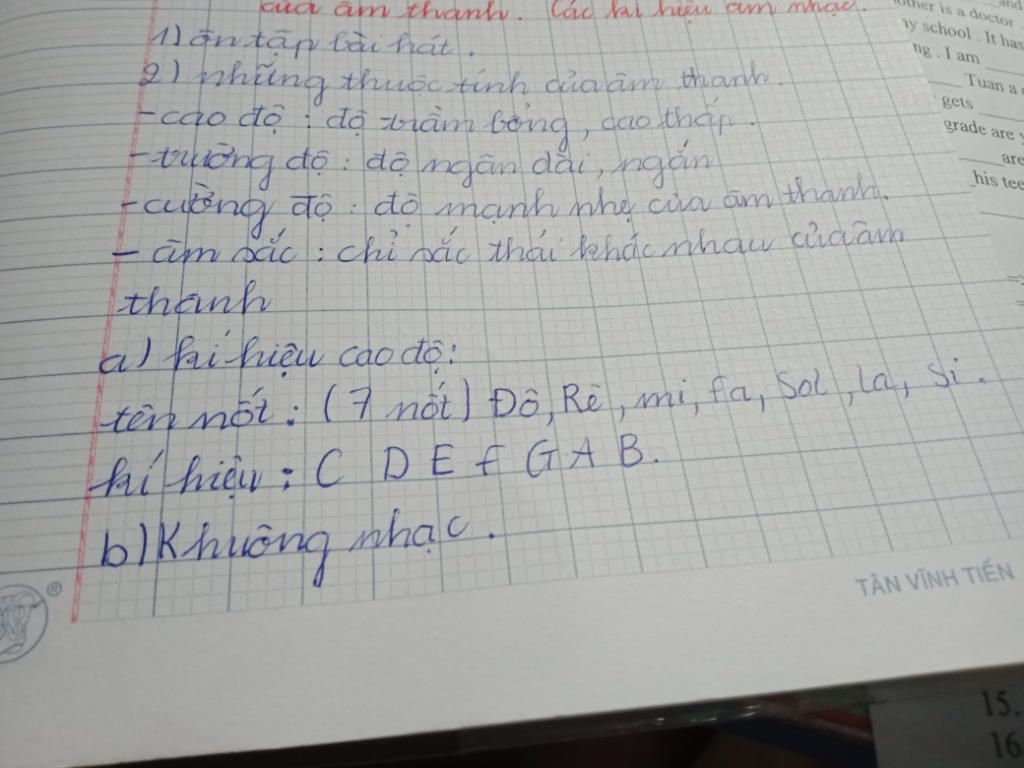 của âm thanh. Các kí hiệu âm nhạc.
1) ôn tập bài hát.
2) những thuộc tính của âm thanh.
- cao độ : độ trầm bổng, cao thấp.
- trường độ : độ ngân dài, ngắn
- cường độ : độ mạnh nhẹ của âm thanh.
- âm sắc : chỉ sắc thái khác nhau của âm
thanh
a) kí hiệu cao độ:
tên nốt : (7 nốt) Đô, Rê, mi, fa, Sol, la, si.
kí hiệu : C D E f G A B.
b) Khuông nhạc.
®
TÂN VĨNH TIẾN
other is a doctor
y school . It has
ng . I am
Tuan a
gets
grade are
are
his tee
15.
16